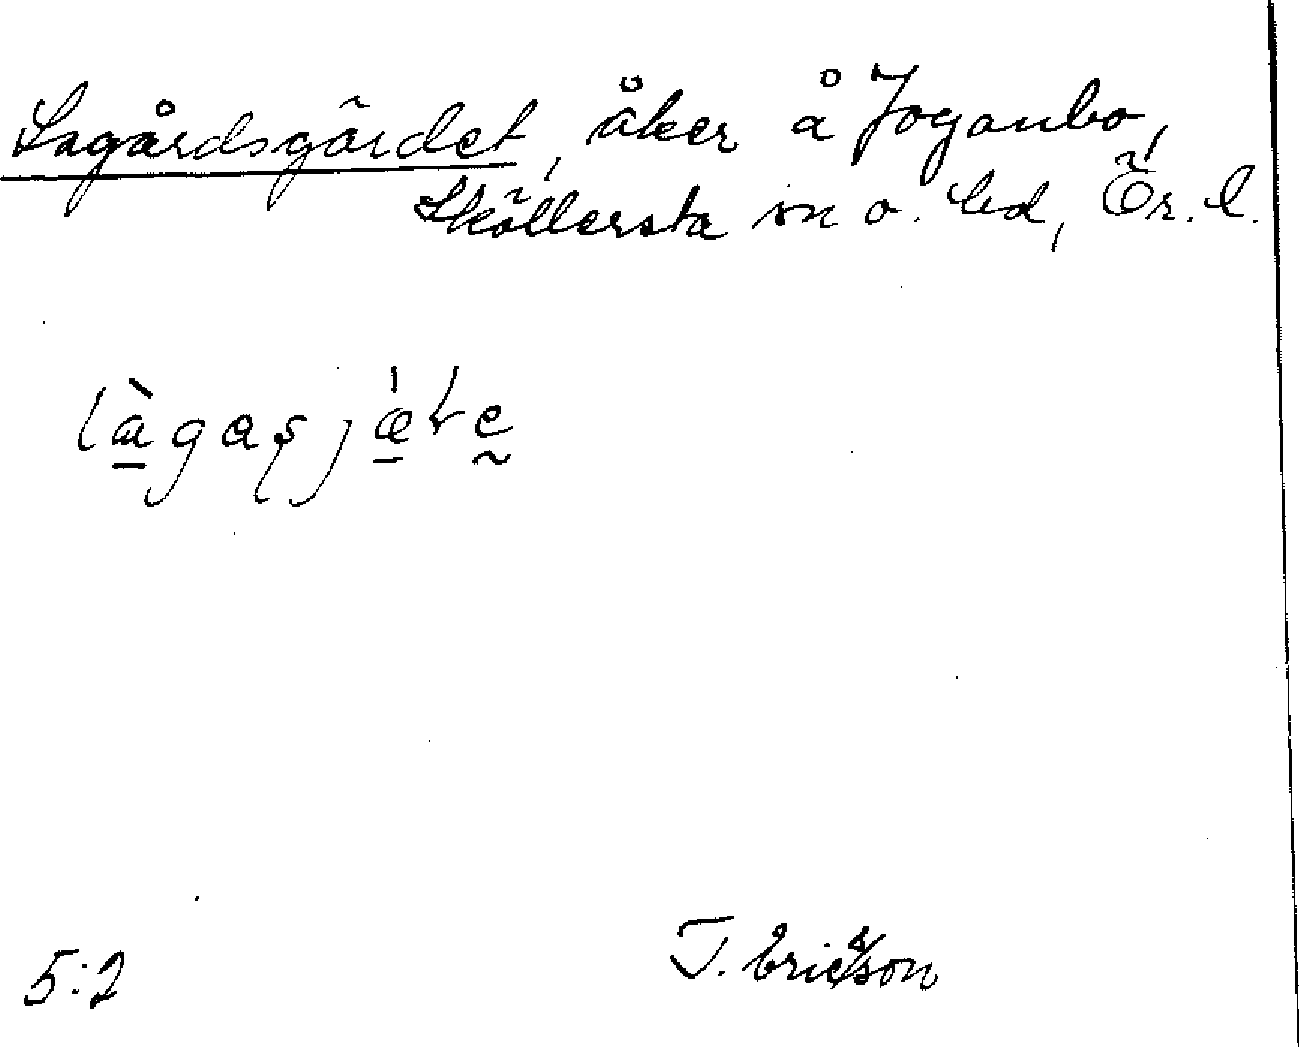 Lagårdsgärdet, åker å Joganbo,
Sköllersta sn o. hd, Ör. l.
làgasjæ̍te
5:2
T. Ericsson